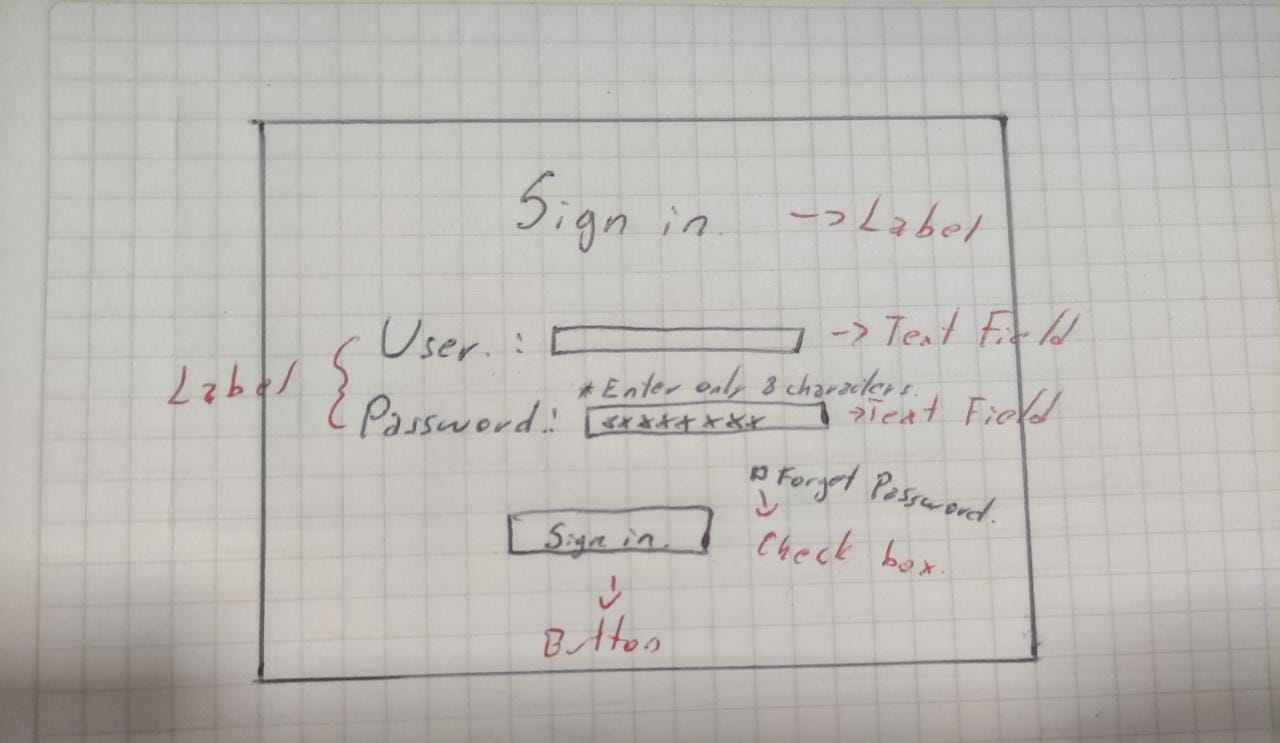 Sign in. -> Label
User. : -> Text Field
Label
* Enter only 8 characters.
Password: ******** -> Text Field
Forget Password.
Sign in.
Check box.
Button